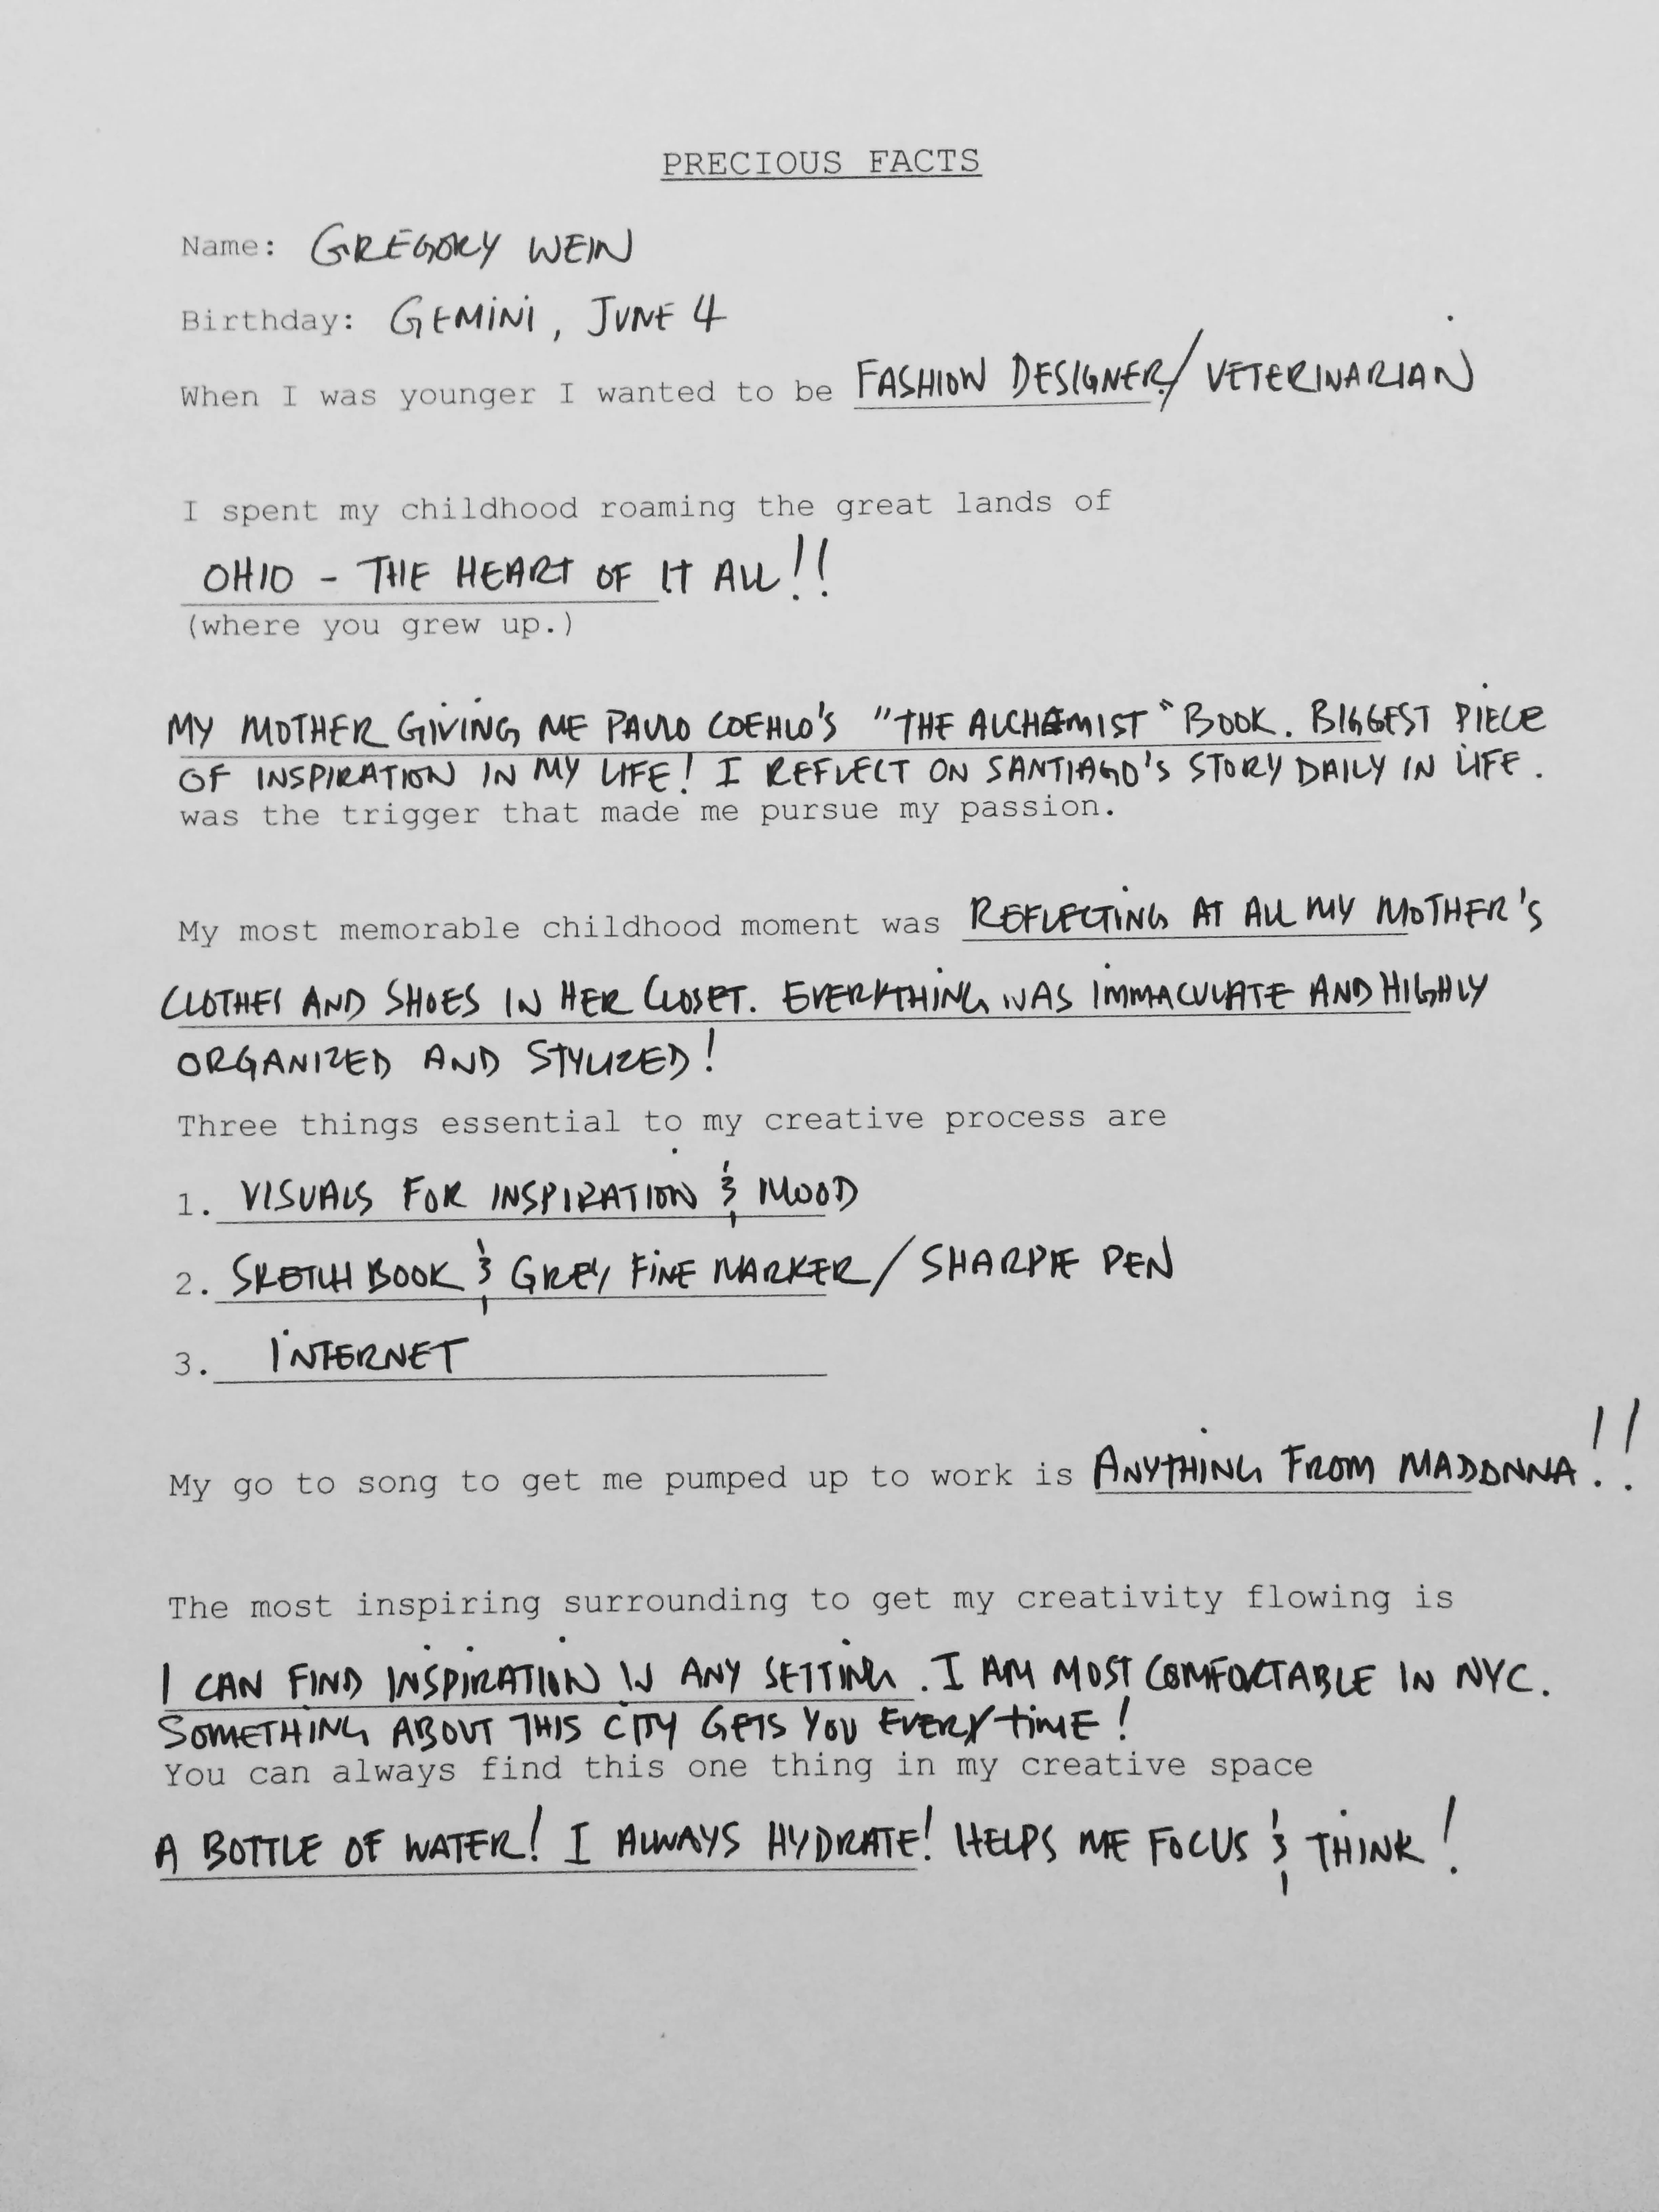 PRECIOUS FACTS
Name: GREGORY WEIN
Birthday: GEMINI, JUNE 4
When I was younger I wanted to be FASHION DESIGNER/VETERINARIAN
I spent my childhood roaming the great lands of
OHIO - THE HEART OF IT ALL!!
(where you grew up.)
MY MOTHER GIVING ME PAULO COEHLO'S "THE ALCHEMIST" BOOK. BIGGEST PIECE
OF INSPIRATION IN MY LIFE! I REFLECT ON SANTIAGO'S STORY DAILY IN LIFE.
was the trigger that made me pursue my passion.
My most memorable childhood moment was REFLECTING AT ALL MY MOTHER'S
CLOTHES AND SHOES IN HER CLOSET. EVERYTHING WAS IMMACULATE AND HIGHLY
ORGANIZED AND STYLIZED!
Three things essential to my creative process are
1. VISUALS FOR INSPIRATION & MOOD
2. SKETCH BOOK & GREY FINE MARKER/SHARPIE PEN
3. INTERNET
My go to song to get me pumped up to work is ANYTHING FROM MADONNA!!
The most inspiring surrounding to get my creativity flowing is
I CAN FIND INSPIRATION IN ANY SETTING. I AM MOST COMFORTABLE IN NYC.
SOMETHING ABOUT THIS CITY GETS YOU EVERY TIME!
You can always find this one thing in my creative space
A BOTTLE OF WATER! I ALWAYS HYDRATE! HELPS ME FOCUS & THINK!